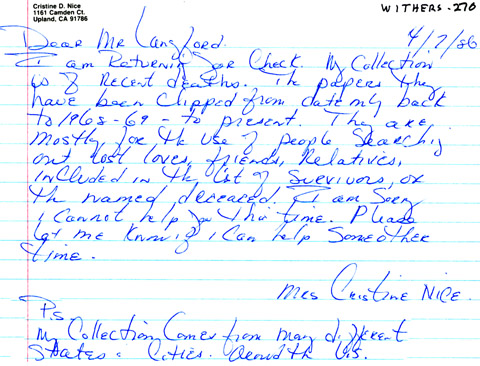 Cristine D. Nice
1161 Camden Ct.
Upland, CA 91786
WITHERS-270
4/7/86
Dear Mr Langford.
I am Returning your Check. My Collection
is of Recent deaths. The papers they
have been Clipped from date my back
to 1968-69 - to present. They are
mostly for the use of people Searching
out lost loves, friends, Relatives,
included in the list of Survivors, or
the named deceased. I am Sorry
I Cannot help you this time. Please
let me Know if I Can help Some other
time.
Mrs Cristine Nice.
P.s.
My Collection Comes from many different
States & Cities. Around the U.S.